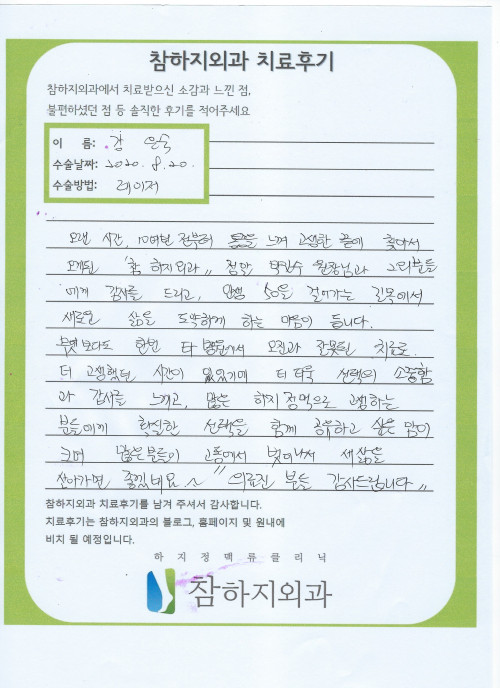 참하지외과 치료후기
참하지외과에서 치료받으신 소감과 느낀 점,
불편하셨던 점 등 솔직한 후기를 적어주세요
이 름: 김 은숙
수술날짜: 2020. 8. 20.
수술방법: 레이저
오랜 시간, 10여년 전부터 통증을 느껴 고생한 끝에 찾아서
오게된 "참 하지외과" 정말 원장님과 그외분들
에게 감사를 드리고, 인생 50을 걸어가는 길목에서
새로운 삶을 도약하게 하는 마음이 듭니다.
무엇보다도 한번 타 병원에서 오진과 잘못된 치료로
더 고생했던 시간이 있었기에 더 더욱 선택의 소중함
과 감사를 느끼고, 많은 하지정맥으로 고생하는
분들에게 확실한 선택을 함께 공유하고 싶은 맘이
크며 많은분들이 고통에서 벗어나서 새 삶을
살아가면 좋겠네요 ~ "의료진 분들 감사드립니다"
참하지외과 치료후기를 남겨 주셔서 감사합니다.
치료후기는 참하지외과의 블로그, 홈페이지 및 원내에
비치 될 예정입니다.
하지정맥류클리닉
참하지외과